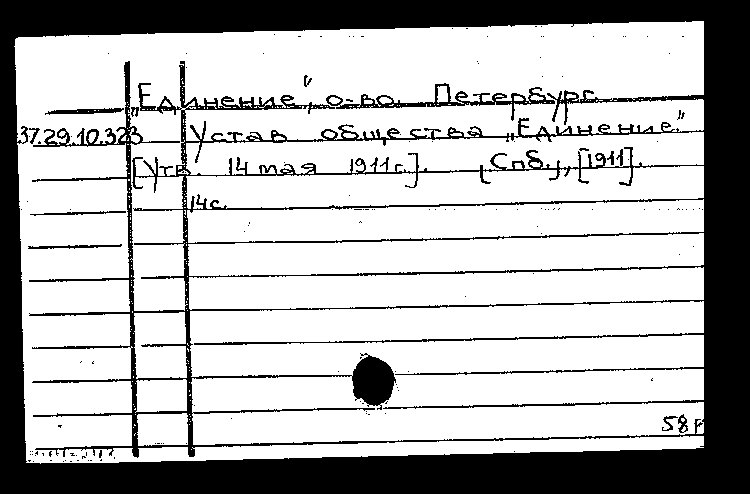 „Единение", о-во. Петербург.
37.29.10.323 Устав общества „Единение."
[Утв. 14 мая 1911 г.]. [Спб.], [1911].
14 с.
58р